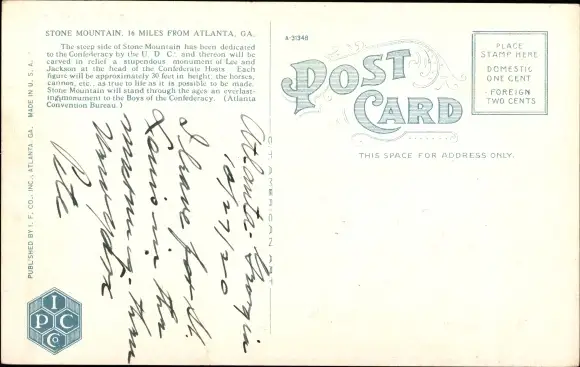 STONE MOUNTAIN, 16 MILES FROM ATLANTA, GA.
The steep side of Stone Mountain has been dedicated
to the Confederacy by the U. D. C. and thereon will be
carved in relief a stupendous monument of Lee and
Jackson at the head of the Confederate Hosts. Each
figure will be approximately 30 feet in height; the horses,
cannon, etc., as true to life as it is possible to be made.
Stone Mountain will stand through the ages an everlast-
ing monument to the Boys of the Confederacy. (Atlanta
Convention Bureau.)
A-21348
POST
CARD
PLACE
STAMP HERE
DOMESTIC
ONE CENT
FOREIGN
TWO CENTS
THIS SPACE FOR ADDRESS ONLY.
PUBLISHED BY I. P. CO., INC., ATLANTA, GA. MADE IN U. S. A.
Atlanta-Georgia
10/27/20
I leave for St.
Louis in the
morning - then
New York
Pete
I
P C
Co